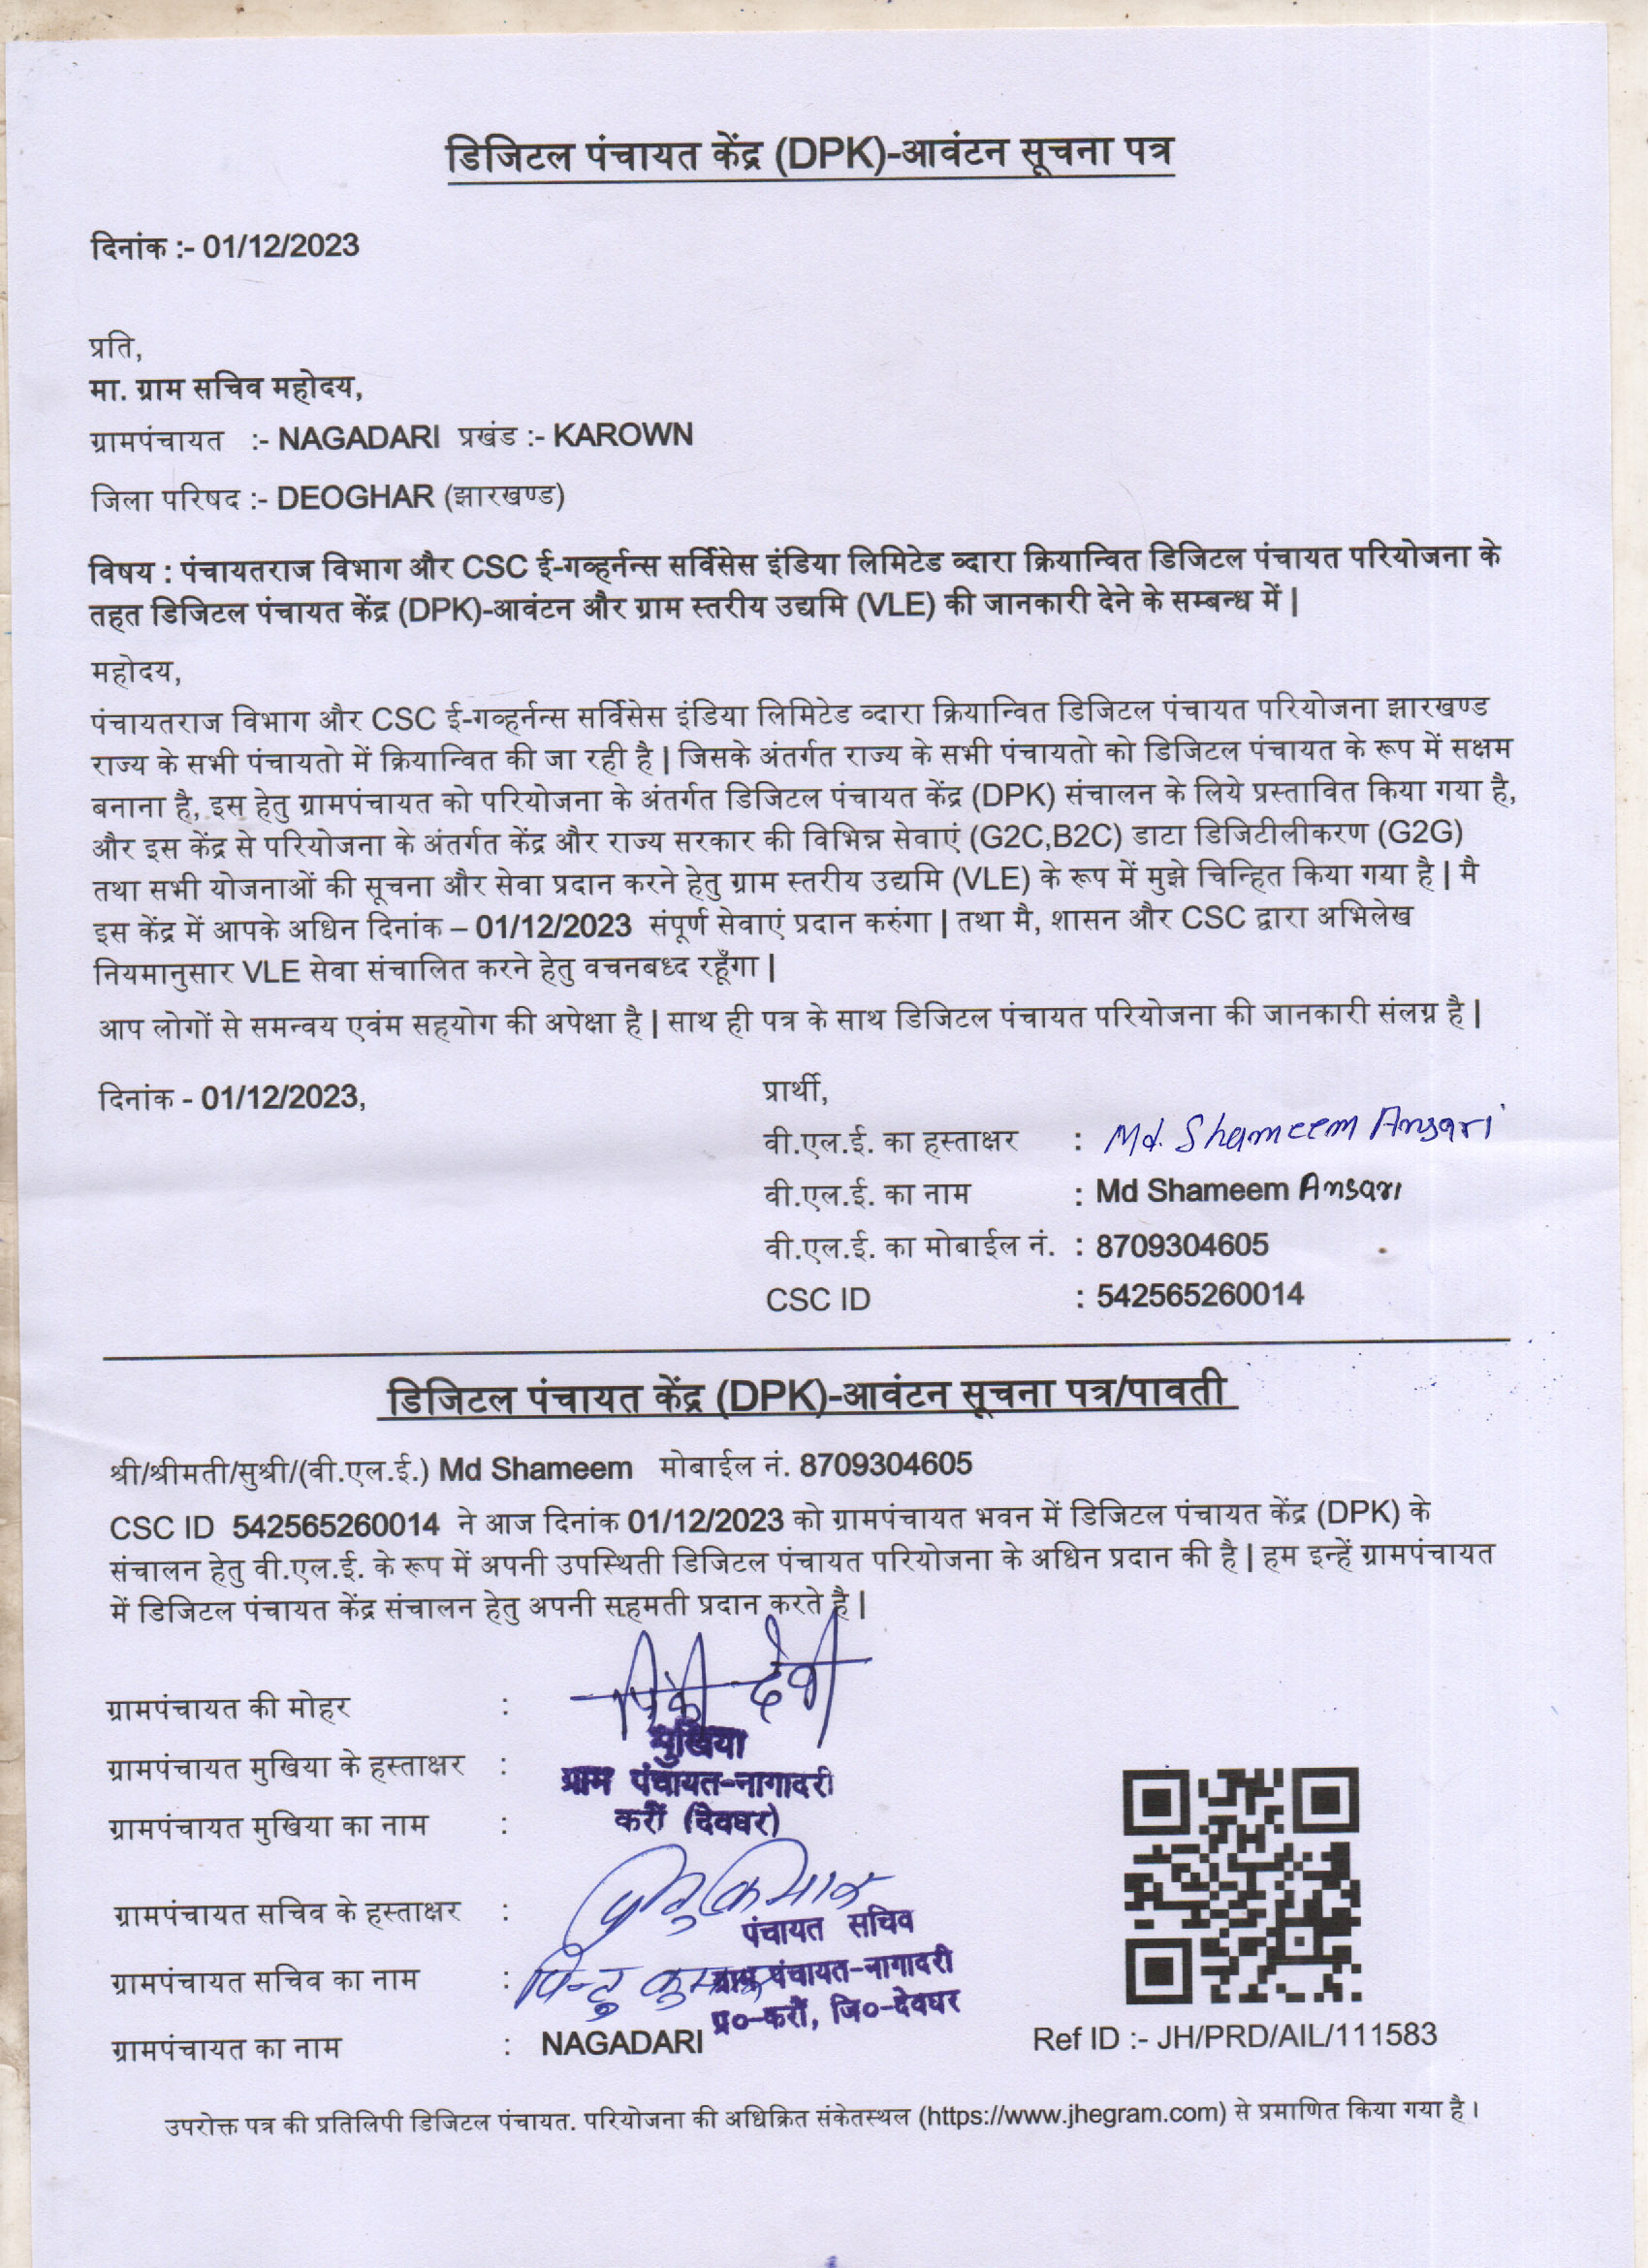 डिजिटल पंचायत केंद्र (DPK)-आवंटन सूचना पत्र
दिनांक :- 01/12/2023
प्रति,
मा. ग्राम सचिव महोदय,
ग्रामपंचायत :- NAGADARI प्रखंड :- KAROWN
जिला परिषद :- DEOGHAR (झारखण्ड)
विषय : पंचायतराज विभाग और CSC ई-गव्हर्नन्स सर्विसेस इंडिया लिमिटेड व्दारा क्रियान्वित डिजिटल पंचायत परियोजना के
तहत डिजिटल पंचायत केंद्र (DPK)-आवंटन और ग्राम स्तरीय उद्यमि (VLE) की जानकारी देने के सम्बन्ध में |
महोदय,
पंचायतराज विभाग और CSC ई-गव्हर्नन्स सर्विसेस इंडिया लिमिटेड व्दारा क्रियान्वित डिजिटल पंचायत परियोजना झारखण्ड
राज्य के सभी पंचायतो में क्रियान्वित की जा रही है | जिसके अंतर्गत राज्य के सभी पंचायतो को डिजिटल पंचायत के रूप में सक्षम
बनाना है, इस हेतु ग्रामपंचायत को परियोजना के अंतर्गत डिजिटल पंचायत केंद्र (DPK) संचालन के लिये प्रस्तावित किया गया है,
और इस केंद्र से परियोजना के अंतर्गत केंद्र और राज्य सरकार की विभिन्न सेवाएं (G2C,B2C) डाटा डिजिटीलीकरण (G2G)
तथा सभी योजनाओं की सूचना और सेवा प्रदान करने हेतु ग्राम स्तरीय उद्यमि (VLE) के रूप में मुझे चिन्हित किया गया है | मै
इस केंद्र में आपके अधिन दिनांक – 01/12/2023 संपूर्ण सेवाएं प्रदान करुंगा | तथा मै, शासन और CSC द्वारा अभिलेख
नियमानुसार VLE सेवा संचालित करने हेतु वचनबध्द रहूँगा |
आप लोगों से समन्वय एवंम सहयोग की अपेक्षा है | साथ ही पत्र के साथ डिजिटल पंचायत परियोजना की जानकारी संलग्न है |
दिनांक - 01/12/2023,
प्रार्थी,
वी.एल.ई. का हस्ताक्षर : Md. Shameem Ansari
वी.एल.ई. का नाम : Md Shameem Ansari
वी.एल.ई. का मोबाईल नं. : 8709304605
CSC ID : 542565260014
डिजिटल पंचायत केंद्र (DPK)-आवंटन सूचना पत्र/पावती
श्री/श्रीमती/सुश्री/(वी.एल.ई.) Md Shameem मोबाईल नं. 8709304605
CSC ID 542565260014 ने आज दिनांक 01/12/2023 को ग्रामपंचायत भवन में डिजिटल पंचायत केंद्र (DPK) के
संचालन हेतु वी.एल.ई. के रूप में अपनी उपस्थिती डिजिटल पंचायत परियोजना के अधिन प्रदान की है | हम इन्हें ग्रामपंचायत
में डिजिटल पंचायत केंद्र संचालन हेतु अपनी सहमती प्रदान करते है |
ग्रामपंचायत की मोहर : पिंकी देवी
मुखिया
ग्रामपंचायत मुखिया के हस्ताक्षर : ग्राम पंचायत-नागादरी
ग्रामपंचायत मुखिया का नाम : करौं (देवघर)
ग्रामपंचायत सचिव के हस्ताक्षर : पिन्टु कुमार
पंचायत सचिव
ग्रामपंचायत सचिव का नाम : पिन्टु कुमार ग्राम पंचायत-नागादरी
प्र०-करौं, जि०-देवघर
ग्रामपंचायत का नाम : NAGADARI
Ref ID :- JH/PRD/AIL/111583
उपरोक्त पत्र की प्रतिलिपी डिजिटल पंचायत. परियोजना की अधिक्रित संकेतस्थल (https://www.jhegram.com) से प्रमाणित किया गया है ।